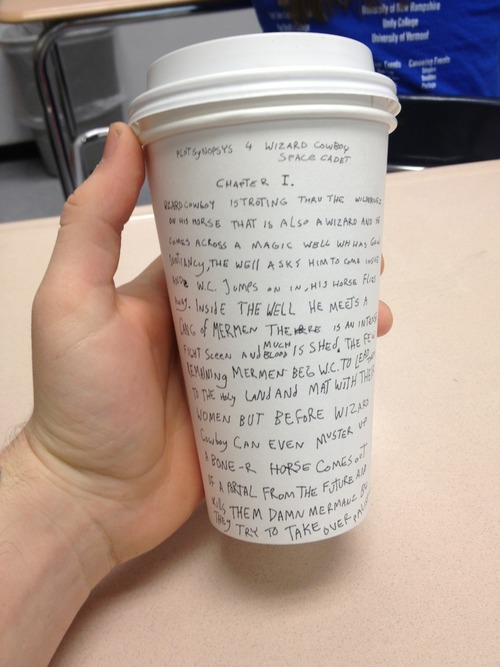 University of New Hampshire
Unity College
University of Vermont
PLOT SYNOPSYS 4 WIZARD COWBOY
SPACE CADET
CHAPTER I.
COWBOY IS TROTING THRU THE
ON HIS HORSE THAT IS ALSO A WIZARD AND HE
COMES ACROSS A MAGIC WELL WH HAS
, THE WELL ASKS HIM TO COME INSIDE
W.C. JUMPS ON IN, HIS HORSE FLIES
AWAY. INSIDE THE WELL HE MEETS A
GANG of MERMEN THERE IS AN INTENSE
FIGHT SCEEN AND MUCH BLOOD IS SHED. THE FEW
REMAINING MERMEN BEG W.C. TO LEAD THEM
TO THE HOLY LAND AND MAT WITH THEIR
WOMEN BUT BEFORE WIZARD
COWBOY CAN EVEN MUSTER UP
A BONE-R HORSE COMES OUT
OF A PORTAL FROM THE FUTURE AND
KILLS THEM DAMN MERMANZ
THEY TRY TO TAKE OVER